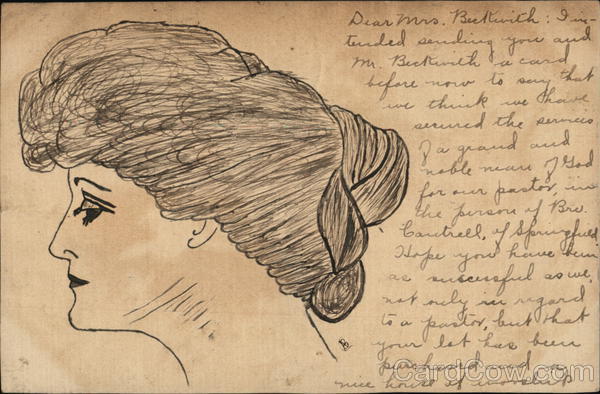 Dear Mrs. Beckwith: I in-
tended sending you and
Mr. Beckwith a card
before now to say that
we think we have
secured the services
of a grand and
noble man of God
for our pastor, in
the person of Bro.
Cantrell, of Springfield
Hope you have been
as successful as we,
not only in regard
to a pastor, but that
your lot has been
purchased and a
nice house of worship
CardCow.com